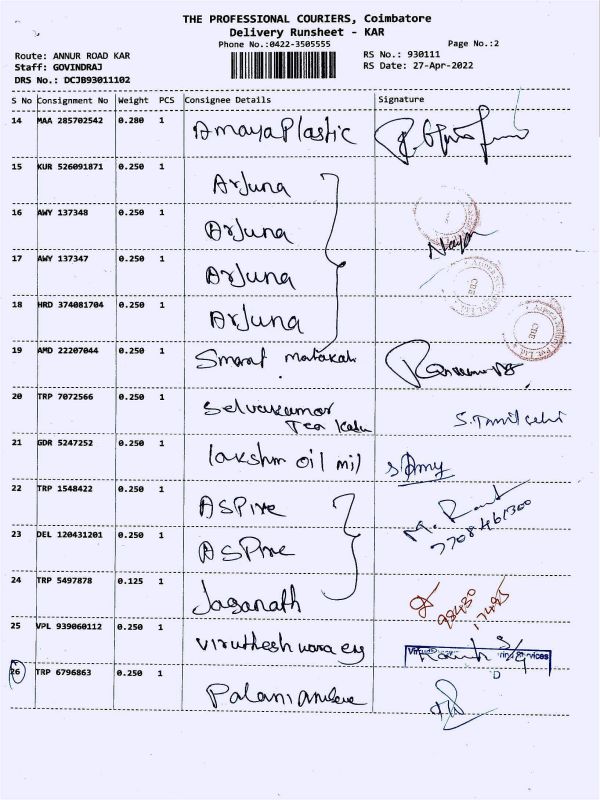 THE PROFESSIONAL COURIERS, Coimbatore
Delivery Runsheet - KAR
Phone No.:0422-3505555
Page No.:2
Route: ANNUR ROAD KAR
RS No.: 930111
Staff: GOVINDRAJ
RS Date: 27-Apr-2022
DRS No.: DCJB93011102
S No Consignment No Weight PCS Consignee Details Signature
14 MAA 285702542 0.280 1 Amaya Plastic
15 KUR 526091871 0.250 1 Arjuna
16 AWY 137348 0.250 1 Arjuna
17 AWY 137347 0.250 1 Arjuna
18 HRD 374081704 0.250 1 Arjuna
19 AMD 22207044 0.250 1 Smarat
20 TRP 7072566 0.250 1 Selvakumar S.Tamil selvi
Tea
21 GDR 5247252 0.250 1 lakshm oil mil
22 TRP 1548422 0.250 1 ASPire
7708461300
23 DEL 120431201 0.250 1 ASPire
24 TRP 5497878 0.125 1 Jaganath 98430
17495
25 VPL 939060112 0.250 1
26 TRP 6796863 0.250 1